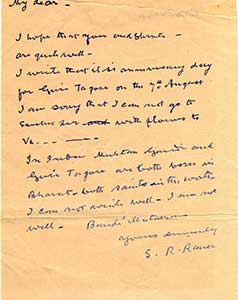 My dear -
I hope that you and Shruti -
are quite well -
I write that it is anniversary day
for Guru Tagore on the 7th August
I am sorry that I can not go to
and with flowers to
In Indian Gandhi and
Guru Tagore are both born in
Bharat - both saints
I can not write well - I am not
well - Bande Mataram
Yours sincerely
S. R. Rana